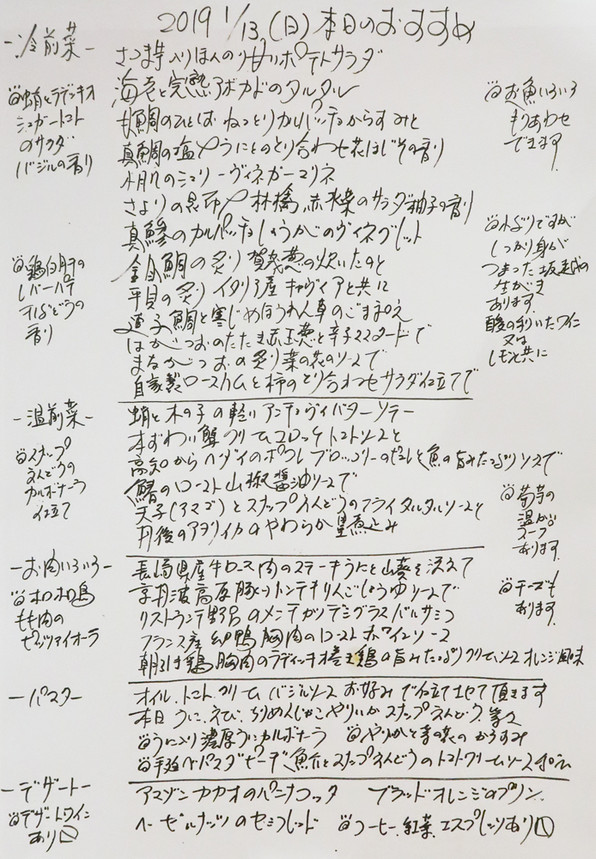 2019 1/13.(日)本日のおすすめ
-冷前菜-
さつま芋入りほんのり甘いポテトサラダ
海老と完熟アボカドのタルタル
胡鯛のひとばんねっとりカルパッチョからすみと
真鯛の塩〆うにとのとり合わせ花ほじその香り
水肌のミュリーヴィネガーマリネ
さよりの昆布〆林檎、赤水菜のサラダ柚子の香り
真鯵のカルパッチョしょうがのヴィネグレット
金目鯛の炙り 賀茂葱の炊いたのと
平貝の炙り イタリア産キャヴィアと共に
鯛と寒じめほうれん草のごまあえ
はがつおのたたき赤玉葱と辛子マスタードで
まながつおの炙り菜の花のソースで
自家製ローストハムと柿のとり合わせサラダ仕立てで
蛸とラディッキオ
シュガートマト
のサラダ
バジルの香り
鶏白肝の
レバーパテ
すぶどうの
香り
お魚いろいろ
もりあわせ
できます
小ぶりですが
しっかり身が
つまった坂越の
生がき
あります
酸の利いたワイン
又は
レモンと共に
-温前菜-
蛸と木の子の軽いアンチョヴィバターソテー
本ずわい蟹クリームコロッケトマトソースと
高知からヘダイのポワレブロッコリーのピュレと魚の旨みたっぷりソースで
鰆のロースト山椒醤油ソースで
天子(アマゴ)とスナップえんどうのフライタルタルソースと
丹後のアオリイカのやわらか墨煮込み
スナップ
えんどうの
カルボナーラ
仕立て
菊芋の
温かい
スープ
あります
-お肉いろいろ-
長崎県産牛ロース肉のステーキうにと山葵を添えて
京丹波高原豚のトンテキりんごしょうゆソースで
リストランテ野呂のメンチカツデミグラスバルサミコ
フランス産幼鴨胸肉のロースト赤ワインソース
朝引き鶏胸肉のラディッキオ巻き鶏の旨みたっぷりクリームソースオレンジ風味
もも肉の
ピッツァイオーラ
チーズも
あります
-パスタ-
オイル、トマト、クリーム、バジルソースお好みで仕立てさせて頂きます
本日 うに、えび、ちりめんじゃこやりいかスナップえんどう 等々
うに入り濃厚うにカルボナーラ やりいかと菜の花のからすみ
魚介とスナップえんどうのトマトクリームソース
-デザート-
アマゾンカカオのパンナコッタ ブラッドオレンジのプリン
ヘーゼルナッツのセミフレッド コーヒー、紅茶、エスプレッソあり〼
デザートワイン
あり〼